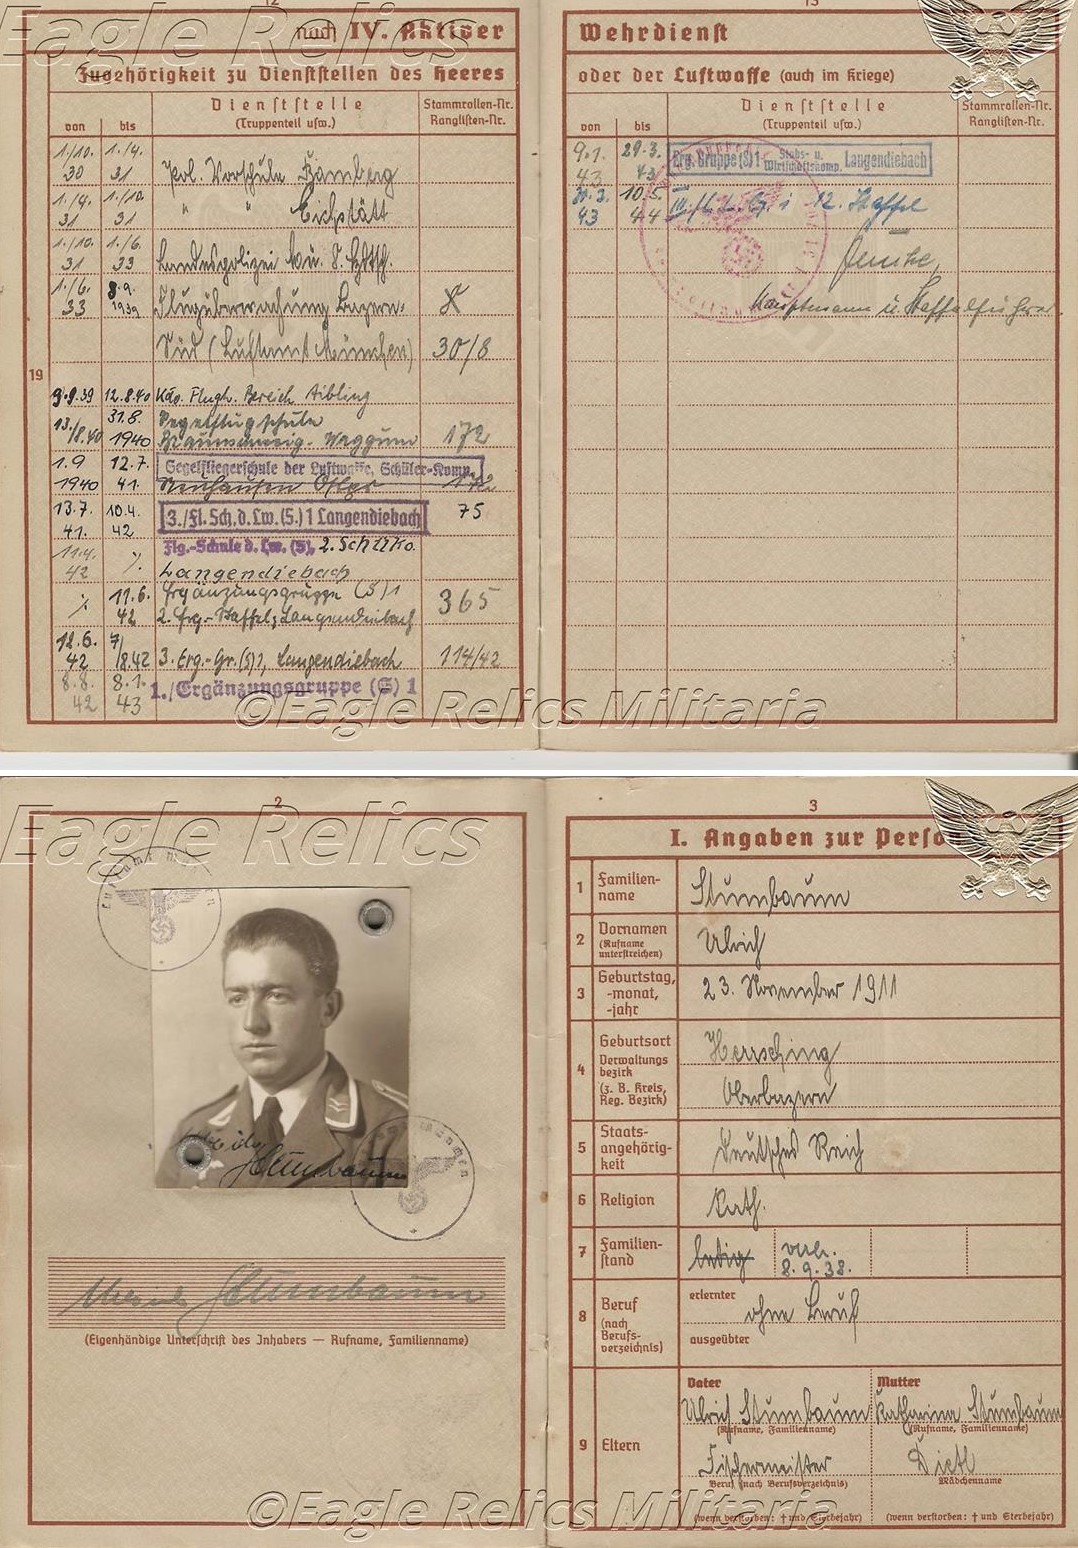 Eagle Relics
12
nach IV. Aktiver
Zugehörigkeit zu Dienststellen des Heeres
von
bis
Dienststelle
(Truppenteil usw.)
Stammrollen-Nr.
Ranglisten-Nr.
1./10. 30
1./4. 31
Pol. Vorschule Bamberg
1./4. 31
1./10. 31
" " Eichstätt
1./10. 31
1./6. 33
Landespolizei
1./6. 33
8.9. 1939
Flugüberwachung Bayern-
Süd (Luftamt München)
30/8
19
9.9.39
12.8.40
Kdo. Flugh. Bereich Aibling
13./8.40
31.8. 1940
Segelflugschule
Braunschweig-Waggum
172
1.9 1940
12.7. 41.
Segelfliegerschule der Luftwaffe, Schüler-Komp.
13.7. 41.
10.4. 42
3./Fl. Sch. d. Lw. (S.) 1 Langendiebach
75
11.4. 42
%
Flg.-Schule d. Lw. (S),
Langendiebach
%
11.6. 42
Ergänzungsgruppe (S) 1
2. Erg.-Staffel, Langendiebach
365
12.6. 42
7/8.42
3. Erg.-Gr. (S) 1, Langendiebach
114/42
8.8. 42
8.1. 43
1./Ergänzungsgruppe (S) 1
13
Wehrdienst
oder der Luftwaffe (auch im Kriege)
von
bis
Dienststelle
(Truppenteil usw.)
Stammrollen-Nr.
Ranglisten-Nr.
9.1. 43
29.3. 43
Erg. Gruppe (S) 1 - Stabs- u. Wirtschaftskomp. Langendiebach
43
10.5. 44
12. Staffel
Hauptmann u. Staffelführer
©Eagle Relics Militaria
Eagle Relics
2
Luftamt München
Luftamt München
Ulrich Stumbaum
(Eigenhändige Unterschrift des Inhabers — Rufname, Familienname)
3
I. Angaben zur Perso
1 Familien-
name
Stumbaum
2 Vornamen
(Rufname
unterstreichen)
Ulrich
3 Geburtstag,
-monat,
-jahr
23. November 1911
4 Geburtsort
Verwaltungs
bezirk
(z. B. Kreis,
Reg. Bezirk)
Herrsching
Oberbayern
5 Staats-
angehörig-
keit
Deutsches Reich
6 Religion
kath.
7 Familien-
stand
ledig
verh.
8.9.38.
8 Beruf
(nach
Berufs-
verzeichnis)
erlernter
ohne Beruf
ausgeübter
9 Eltern
Vater
Mutter
Ulrich Stumbaum
Katharina Stumbaum
(Rufname, Familienname)
(Rufname, Familienname)
Fischermeister
Dietl
Beruf (nach Berufsverzeichnis)
Mädchenname
(wenn verstorben: † und Sterbejahr)
(wenn verstorben: † und Sterbejahr)
©Eagle Relics Militaria